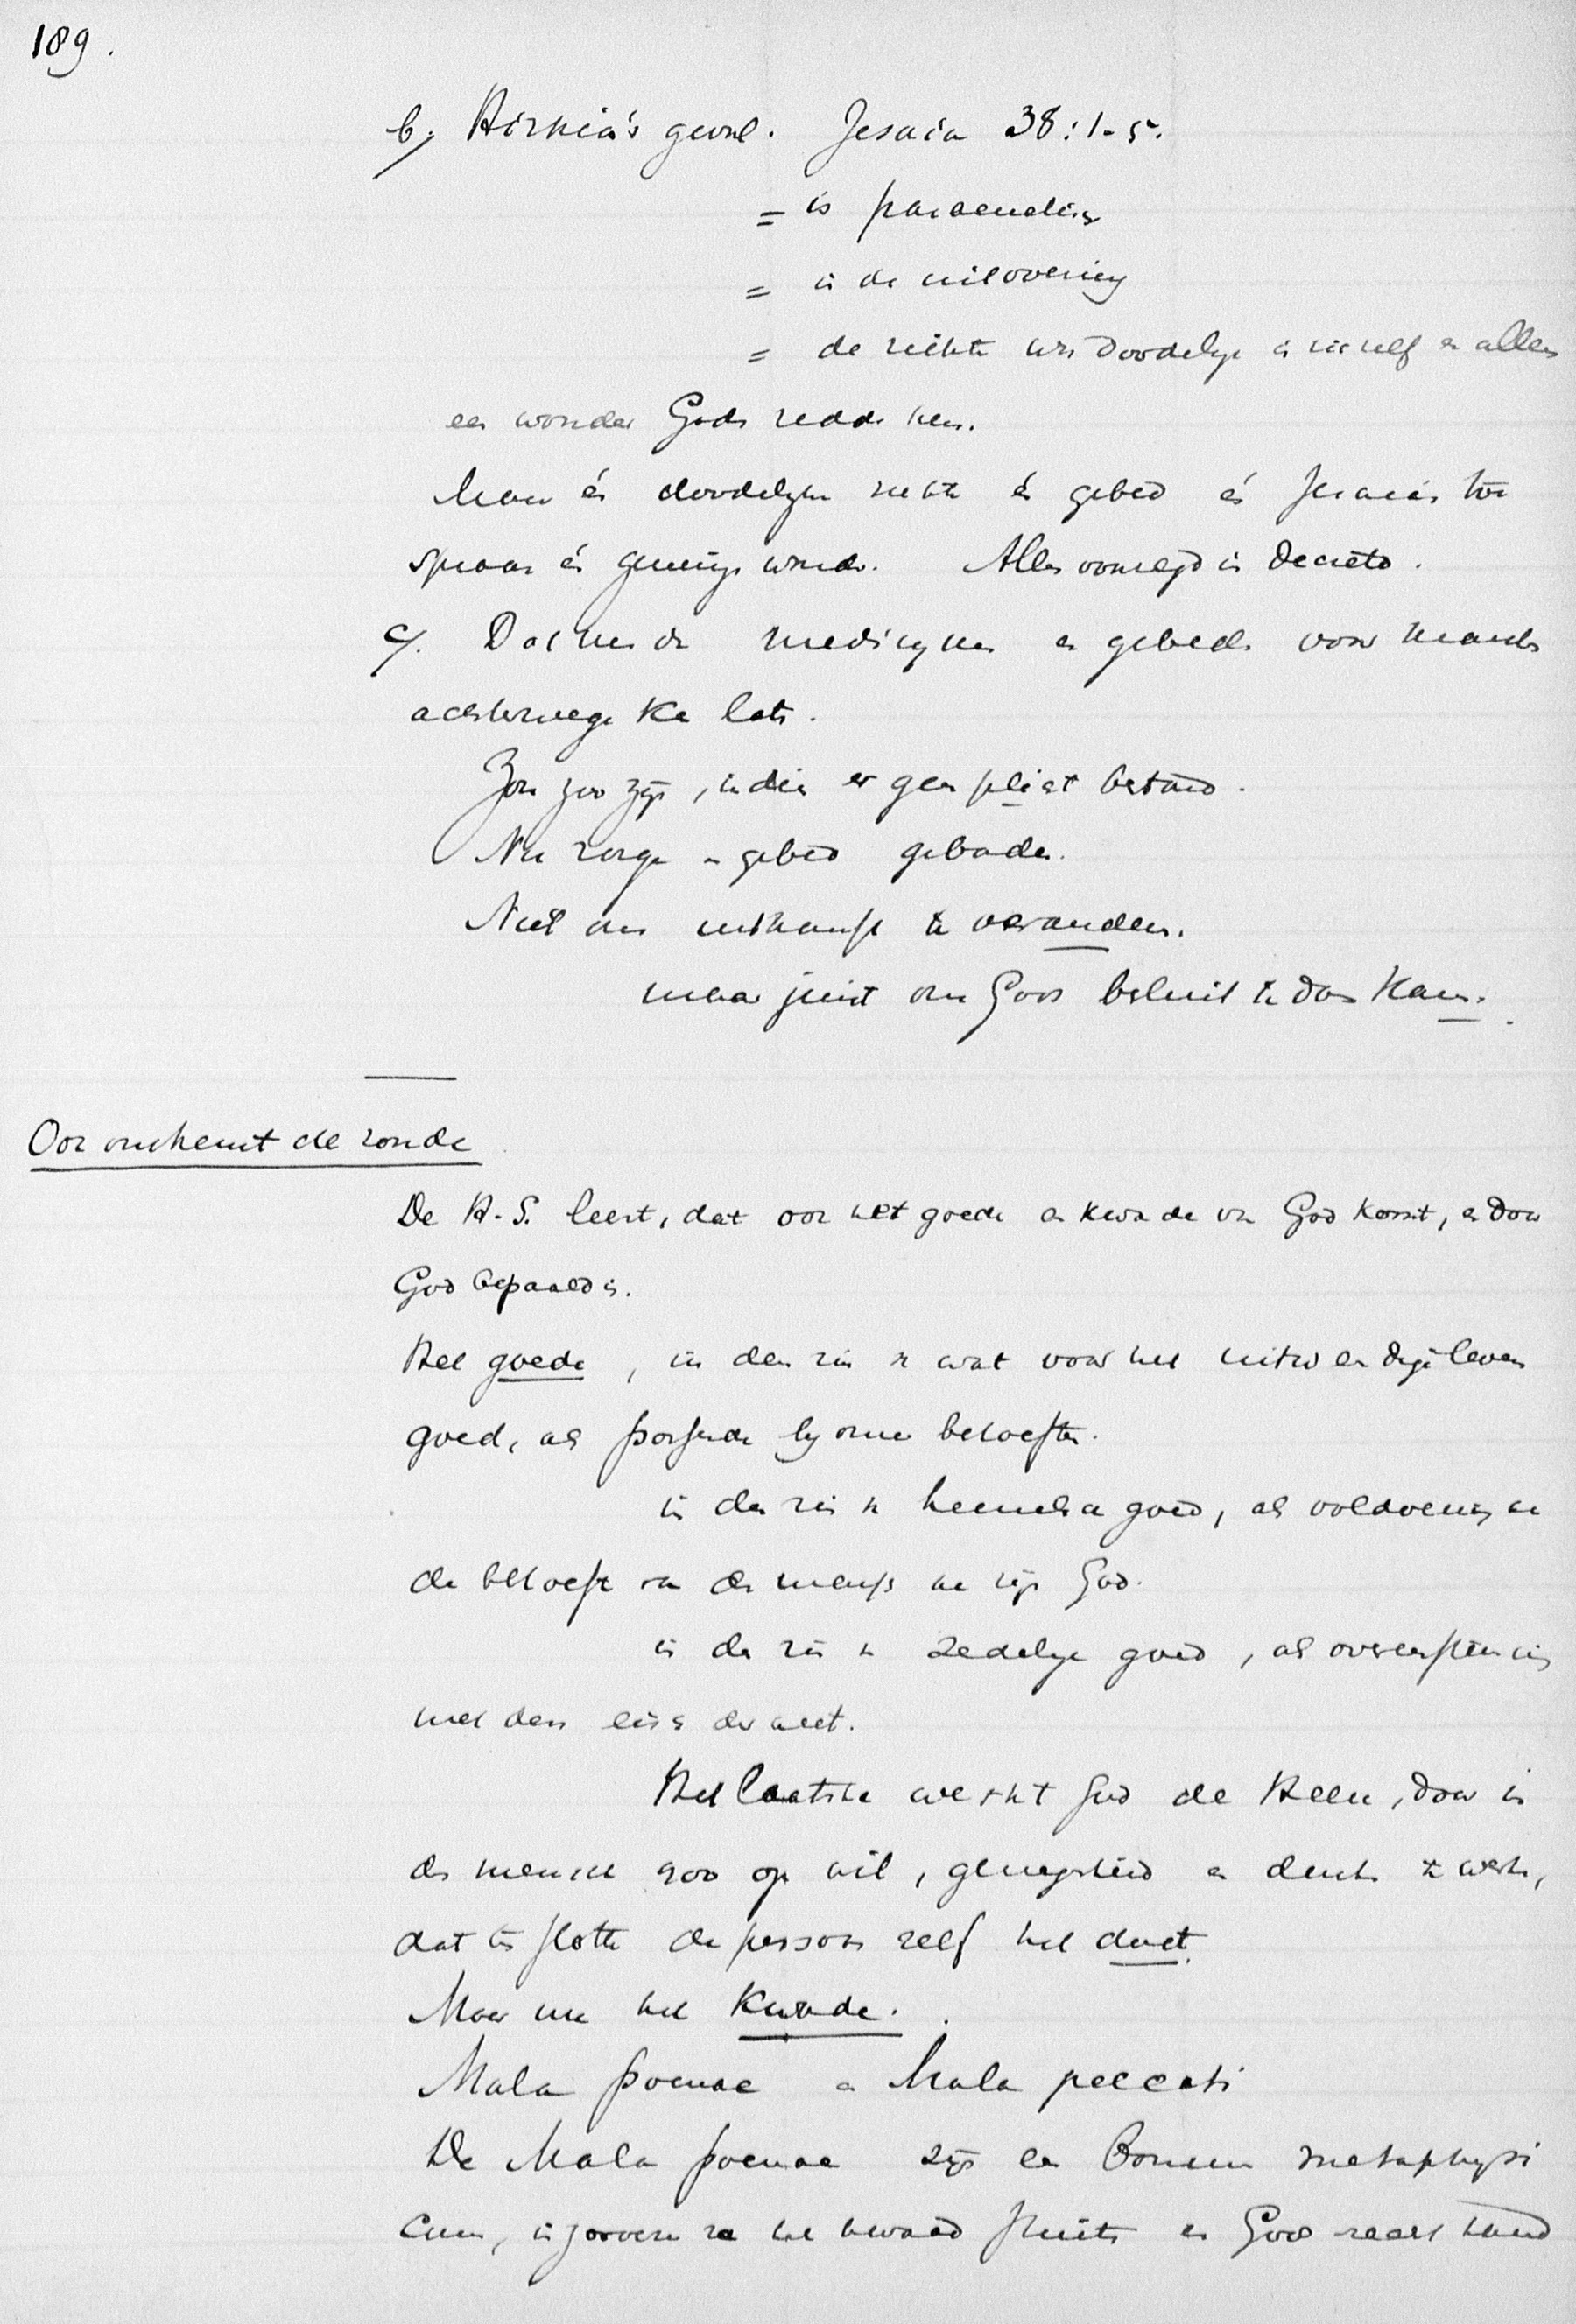 189.
b, Hizkia's geval. Jesaia 38:1-5.
= is paraenetisch
= in de uitvoering
= de ziekte was doodelijk in zichzelf en alleen
een wonder Gods redde hem.
Maar én doodelijke ziekte én gebed én Jesaia's toe
spraak én genezing wonder. Alles voorzegd in Decreto.
c/. Dat ons de medicijnen en gebeden voor kranken
achterwege kan laten.
Zou zoo zijn, indien er geen plicht bestond.
Nu zorge en gebed geboden.
Niet om uitkomst te veranderen.
maar juist om Gods besluit te doen komen.
Ook omhemt de zonde
De H.S. leert, dat ook het goede en kwade van God komt, en door
God bepaald is.
Het goede, in den zin v wat voor het uitwendige leven
goed, als passende bij onze behoeften.
in den zin v hemelsch goed, als voldoening aan
de behoefte van den mensch aan zijn God.
in den zin v zedelijk goed, als overeenstemming
met den eisch der wet.
Het laatste werkt God de Heere, door in
den mensch zoo op wil, genegenheid en denken te werken,
dat ten slotte de persoon zelf het doet.
Maar nu het Kwade.
Mala poenae en Mala peccati
De Mala poenae zijn een Bonum metaphysi
cum, in zooverre ze het kwaad stuiten en Gods recht hand